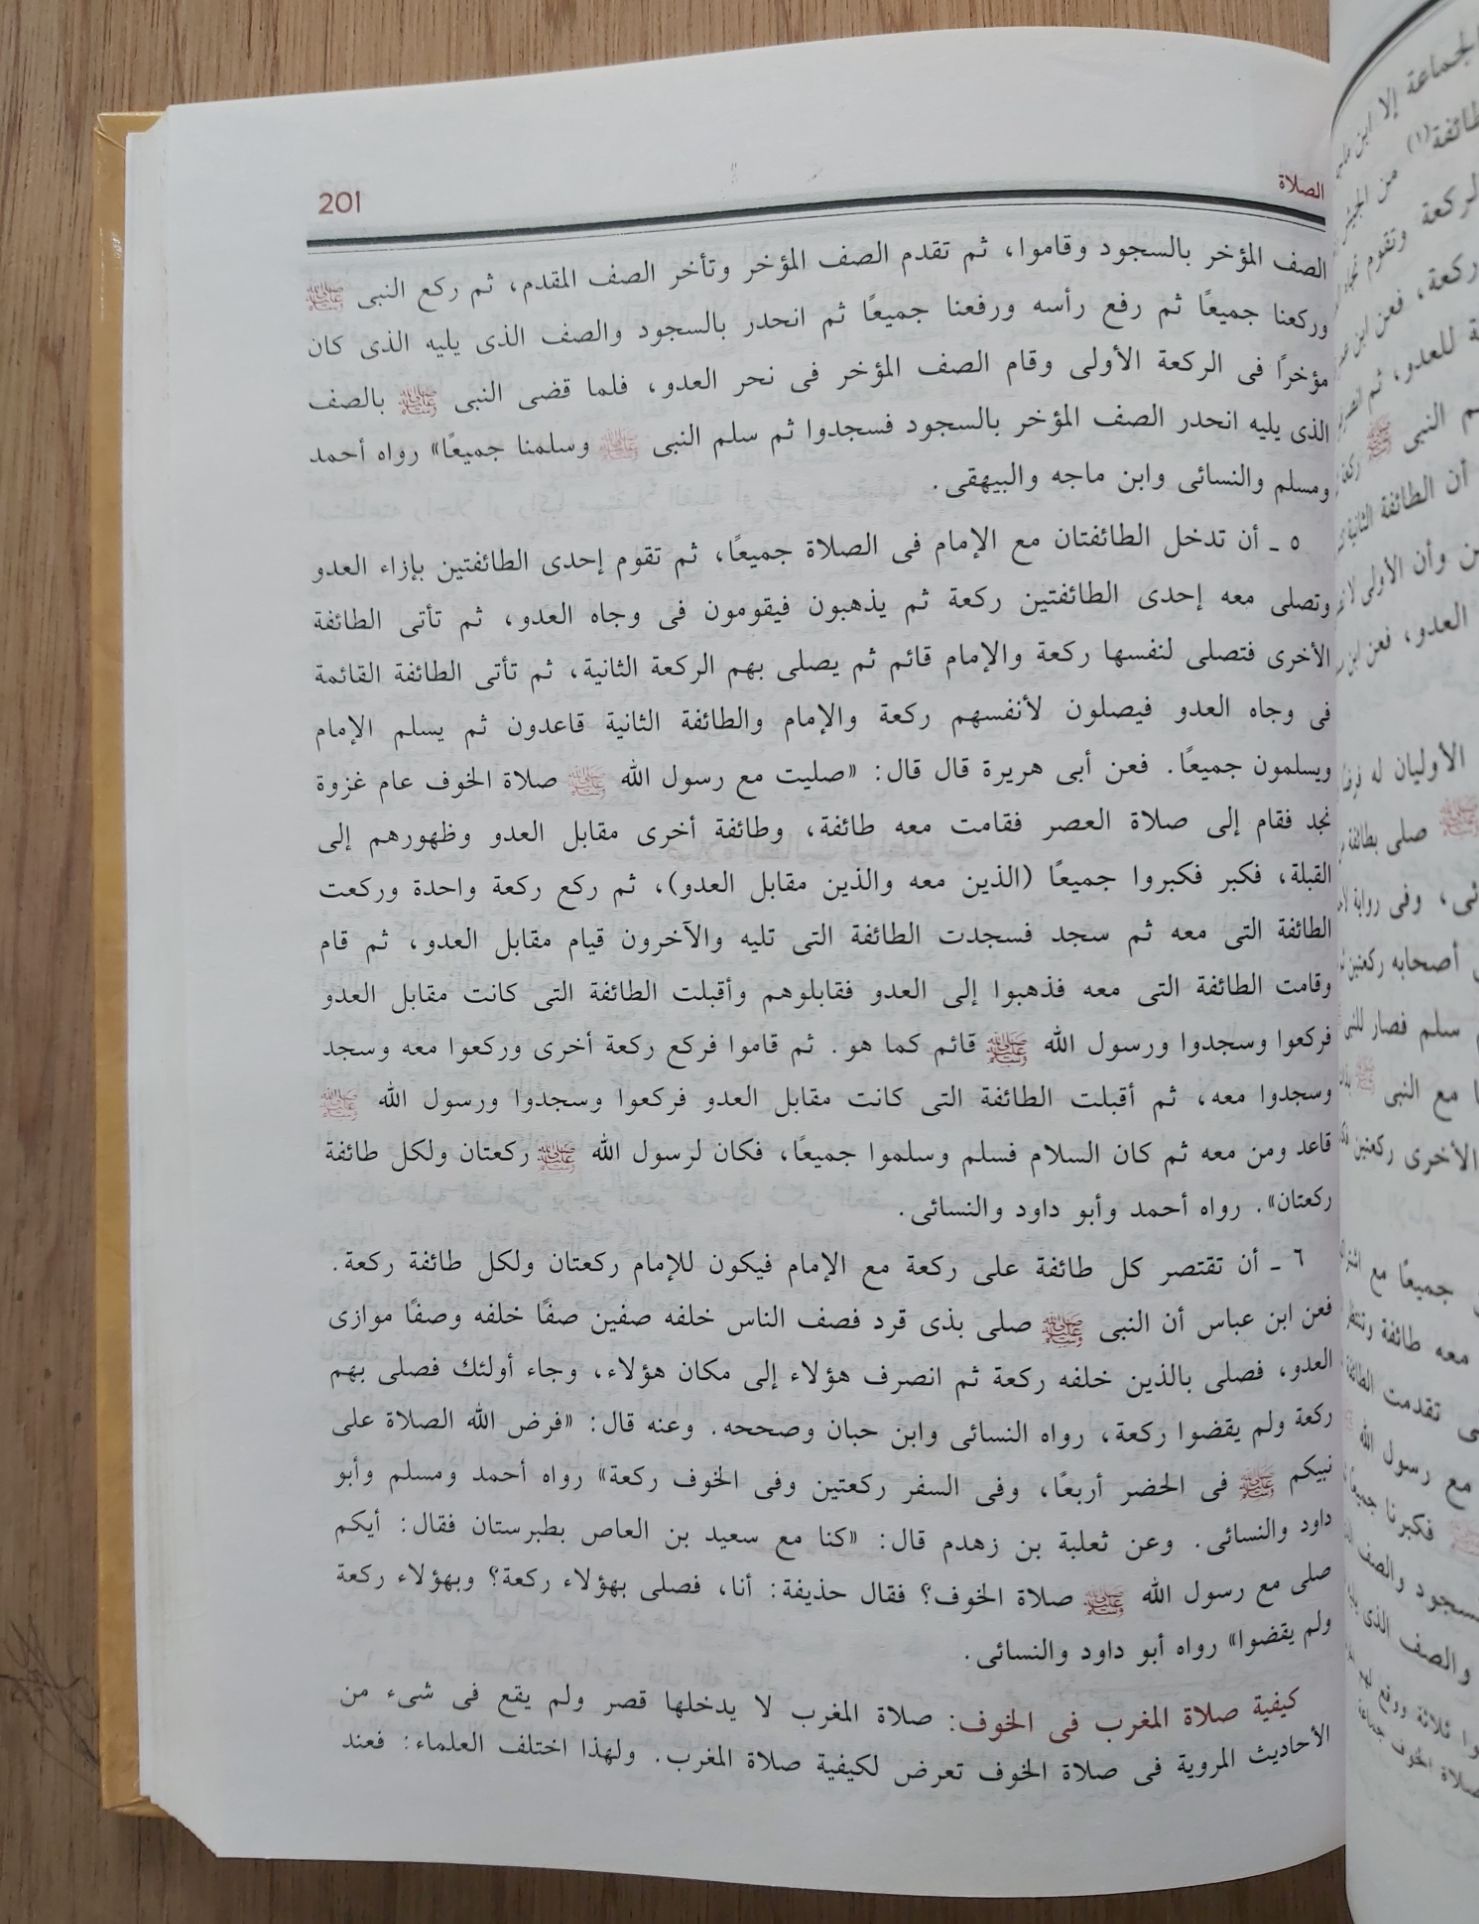 الصلاة
201
الصف المؤخر بالسجود وقاموا، ثم تقدم الصف المؤخر وتأخر الصف المقدم، ثم ركع النبى ﷺ
وركعنا جميعًا ثم رفع رأسه ورفعنا جميعًا ثم انحدر بالسجود والصف الذى يليه الذى كان
مؤخرًا فى الركعة الأولى وقام الصف المؤخر فى نحر العدو، فلما قضى النبى ﷺ بالصف
الذى يليه انحدر الصف المؤخر بالسجود فسجدوا ثم سلم النبى ﷺ وسلمنا جميعًا» رواه أحمد
ومسلم والنسائى وابن ماجه والبيهقى.
٥ ـ أن تدخل الطائفتان مع الإمام فى الصلاة جميعًا، ثم تقوم إحدى الطائفتين بإزاء العدو
وتصلى معه إحدى الطائفتين ركعة ثم يذهبون فيقومون فى وجاه العدو، ثم تأتى الطائفة
الأخرى فتصلى لنفسها ركعة والإمام قائم ثم يصلى بهم الركعة الثانية، ثم تأتى الطائفة القائمة
فى وجاه العدو فيصلون لأنفسهم ركعة والإمام والطائفة الثانية قاعدون ثم يسلم الإمام
ويسلمون جميعًا. فعن أبى هريرة قال قال: «صليت مع رسول الله ﷺ صلاة الخوف عام غزوة
نجد فقام إلى صلاة العصر فقامت معه طائفة، وطائفة أخرى مقابل العدو وظهورهم إلى
القبلة، فكبر فكبروا جميعًا (الذين معه والذين مقابل العدو)، ثم ركع ركعة واحدة وركعت
الطائفة التى معه ثم سجد فسجدت الطائفة التى تليه والآخرون قيام مقابل العدو، ثم قام
وقامت الطائفة التى معه فذهبوا إلى العدو فقابلوهم وأقبلت الطائفة التى كانت مقابل العدو
فركعوا وسجدوا ورسول الله ﷺ قائم كما هو. ثم قاموا فركع ركعة أخرى وركعوا معه وسجد
وسجدوا معه، ثم أقبلت الطائفة التى كانت مقابل العدو فركعوا وسجدوا ورسول الله ﷺ
قاعد ومن معه ثم كان السلام فسلم وسلموا جميعًا، فكان لرسول الله ﷺ ركعتان ولكل طائفة
ركعتان». رواه أحمد وأبو داود والنسائى.
٦ ـ أن تقتصر كل طائفة على ركعة مع الإمام فيكون للإمام ركعتان ولكل طائفة ركعة.
فعن ابن عباس أن النبى ﷺ صلى بذى قرد فصف الناس خلفه صفين صفًا خلفه وصفًا موازى
العدو، فصلى بالذين خلفه ركعة ثم انصرف هؤلاء إلى مكان هؤلاء، وجاء أولئك فصلى بهم
ركعة ولم يقضوا ركعة، رواه النسائى وابن حبان وصححه. وعنه قال: «فرض الله الصلاة على
نبيكم ﷺ فى الحضر أربعًا، وفى السفر ركعتين وفى الخوف ركعة» رواه أحمد ومسلم وأبو
داود والنسائى. وعن ثعلبة بن زهدم قال: «كنا مع سعيد بن العاص بطبرستان فقال: أيكم
صلى مع رسول الله ﷺ صلاة الخوف؟ فقال حذيفة: أنا، فصلى بهؤلاء ركعة؟ وبهؤلاء ركعة
ولم يقضوا» رواه أبو داود والنسائى.
كيفية صلاة المغرب فى الخوف: صلاة المغرب لا يدخلها قصر ولم يقع فى شىء من
الأحاديث المروية فى صلاة الخوف تعرض لكيفية صلاة المغرب. ولهذا اختلف العلماء: فعند